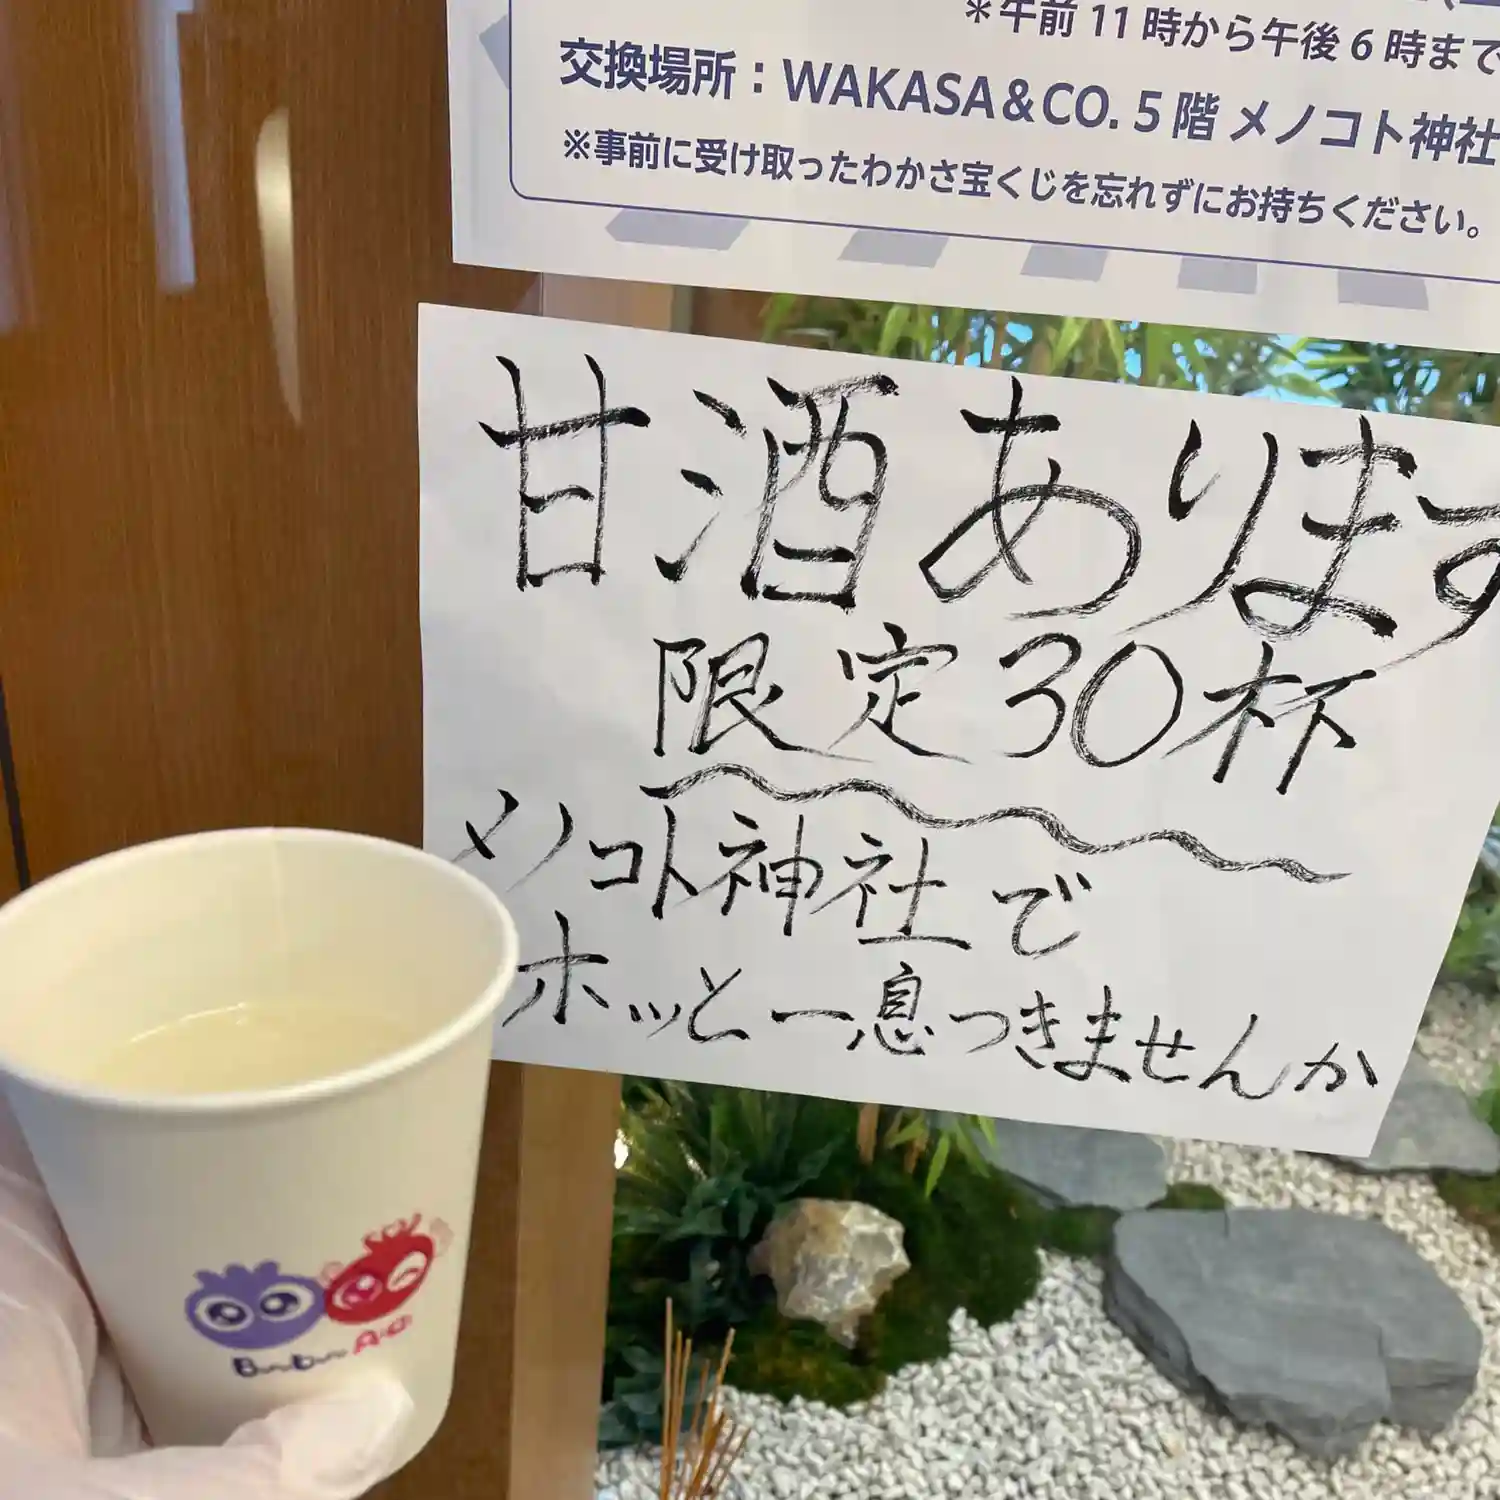 ＊午前11時から午後6時まで
交換場所：WAKASA＆CO. 5階 メノコト神社
※事前に受け取ったわかさ宝くじを忘れずにお持ちください。
甘酒あります
限定30杯
メノコト神社で
ホッと一息つきませんか